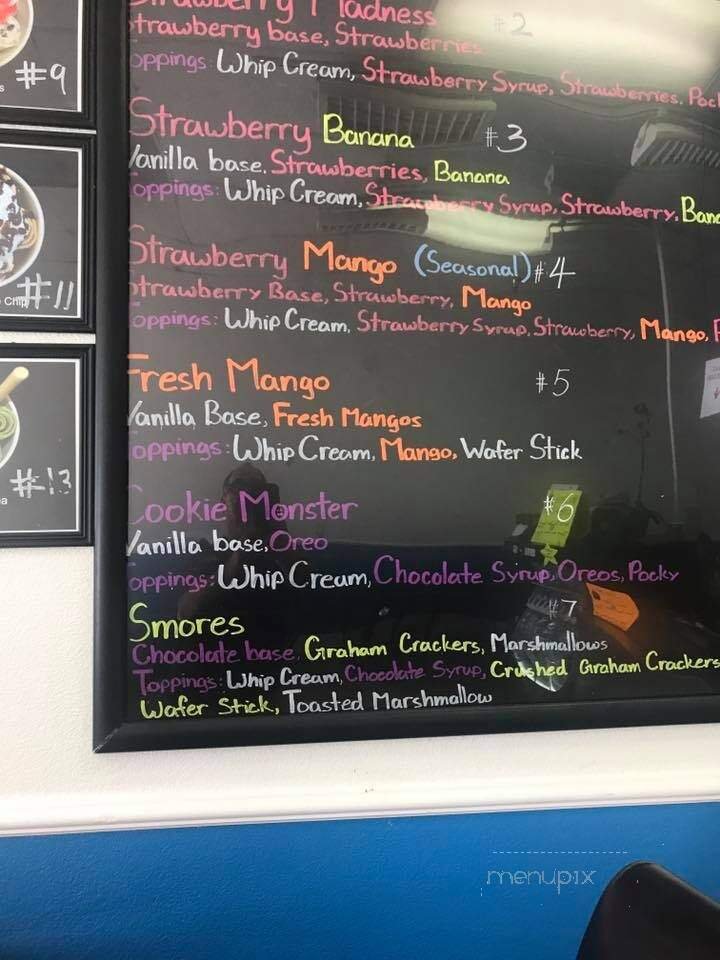 Strawberry Madness #2
Strawberry base, Strawberries
Toppings Whip Cream, Strawberry Syrup, Strawberries,
Strawberry Banana #3
Vanilla base, Strawberries, Banana
Toppings: Whip Cream, Strawberry Syrup, Strawberry,
Strawberry Mango (Seasonal) #4
Strawberry Base, Strawberry, Mango
Toppings: Whip Cream, Strawberry Syrup, Strawberry, Mango,
Fresh Mango #5
Vanilla Base, Fresh Mangos
Toppings: Whip Cream, Mango, Wafer Stick
Cookie Monster #6
Vanilla base, Oreo
Toppings: Whip Cream, Chocolate Syrup, Oreos, Pocky
Smores #7
Chocolate base, Graham Crackers, Marshmallows
Toppings: Whip Cream, Chocolate Syrup, Crushed Graham Crackers
Wafer Stick, Toasted Marshmallow
#9
Chip
#11
#13
menupix